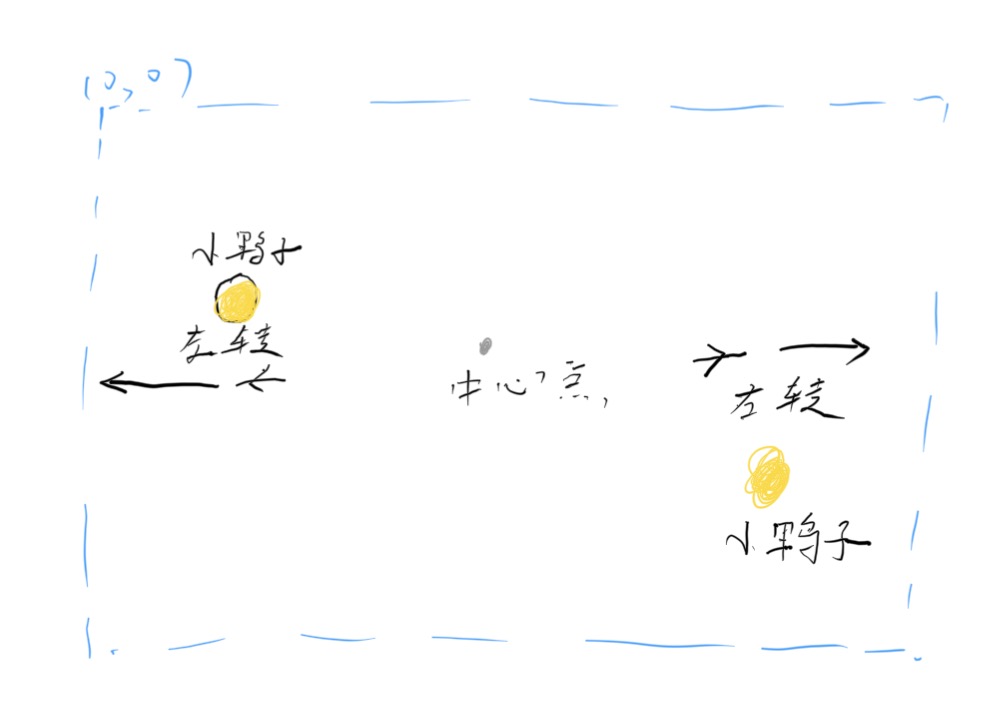 (0,0)
小鸭子
左转
中心点,
左转
小鸭子